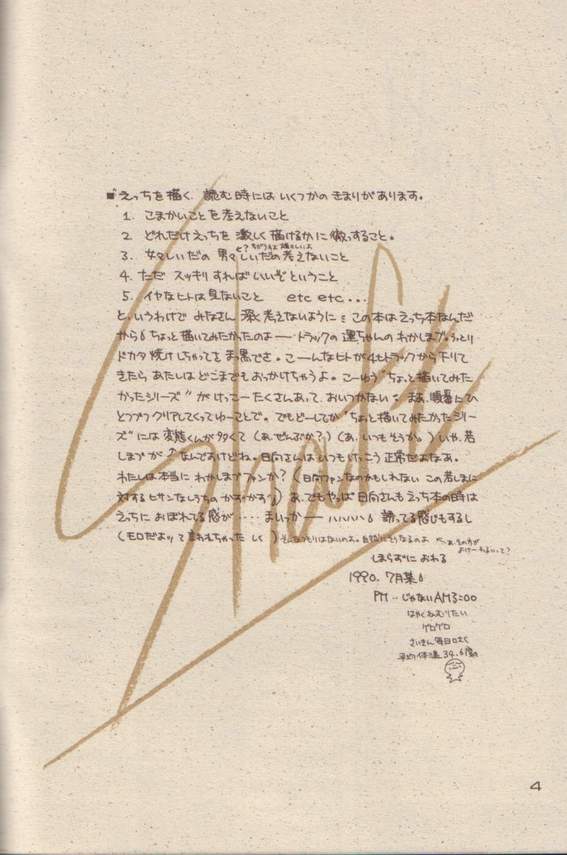 ■えっちを描く、読む時には いくつかの きまりがあります。
1. こまかいことを考えないこと
2. どれだけえっちを 激しく描けるかに徹っすること。
3. 女々しいだの 男々しいだの考えないこと
4. ただ スッキリすればいいぞということ
5. イヤなヒトは見ないこと etc etc...
と、いうわけで みなさん 深く考えないように この本はえっち本なんだ
から ちょっと描いてみたかったのよ ートラックの運ちゃんの わかしまづ。
ドカタ焼けしちゃって ま黒でさ。こーんなヒトが4tトラックから下りて
きたら あたしはどこまでもおっかけちゃうよ。こーゆう "ちょっと描いてみた
かったシリーズ" がけっこーたくさんあって、おいつかない まあ、順番にひ
とつづつクリアしてくってゆーことで。でもどーしてか "ちょっと描いてみたかったシリー
ズ" には 変態くんが多くて (あ、ぜんぶか?) (あ、いつもそうか。) いや、若
しまづが なんですけどね。日向さんは いつもけっこう 正常だよなあ。
わたしは本当に わかしまづファンか? (日向ファンなのかもしれない この若しまに
対する ) あ、でもやっぱ 日向さんも えっち本の時は
えっちに おぼれてる感が‥‥ まいっかー ハハハハ 誘ってる感じもするし
(モロだよッて 言われちゃった しく) そんなつもりはないのよ。
しまらずに おわる
1990. 7月某
PM‥じゃない AM3:00
はやくねむりたい
ゲロゲロ
さいきん毎日
平均体温34.6度の
Shade
4